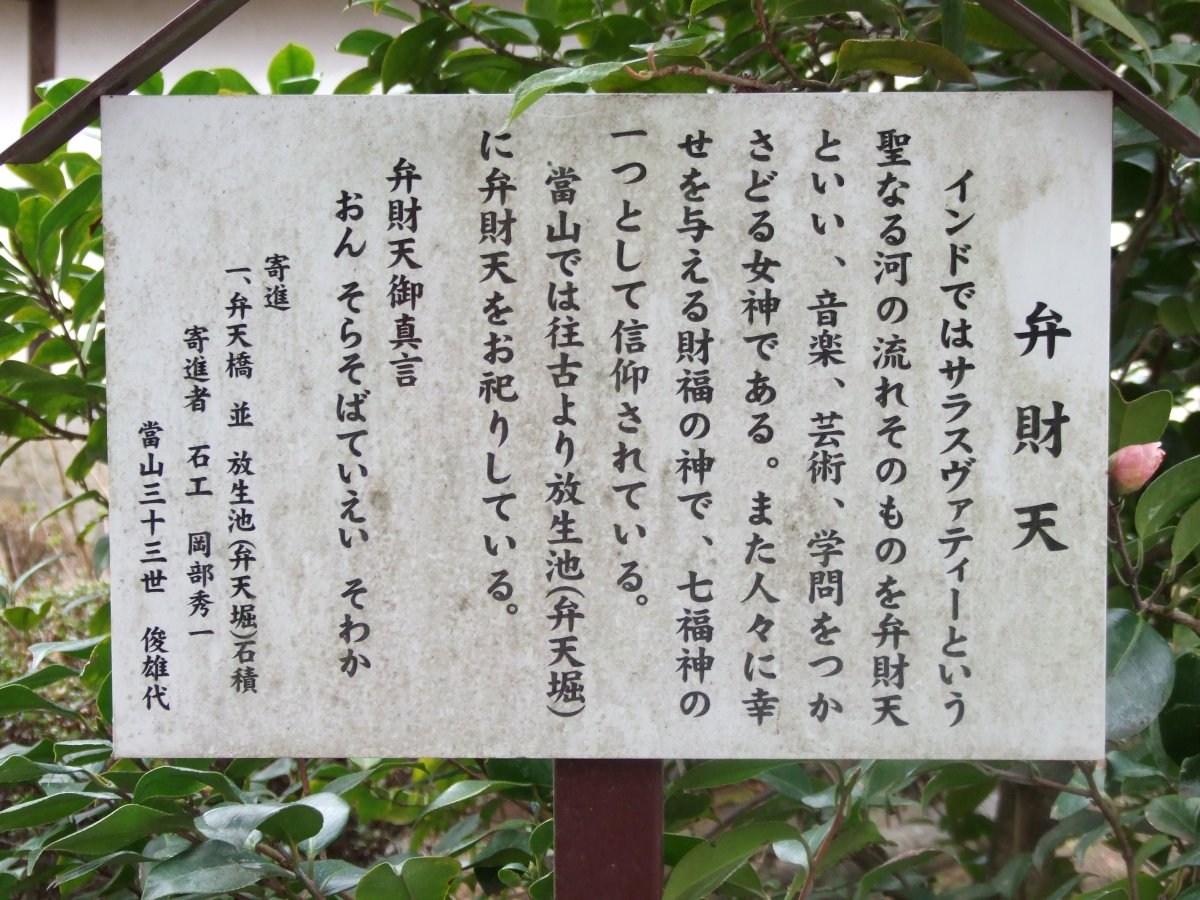 弁財天
インドではサラスヴァティーという
聖なる河の流れそのものを弁財天
といい、音楽、芸術、学問をつか
さどる女神である。また人々に幸
せを与える財福の神で、七福神の
一つとして信仰されている。
當山では往古より放生池(弁天堀)
に弁財天をお祀りしている。
弁財天御真言
おん そらそばていえい そわか
寄進
一、弁天橋 並 放生池(弁天堀)石積
寄進者 石工 岡部秀一
當山三十三世 俊雄代